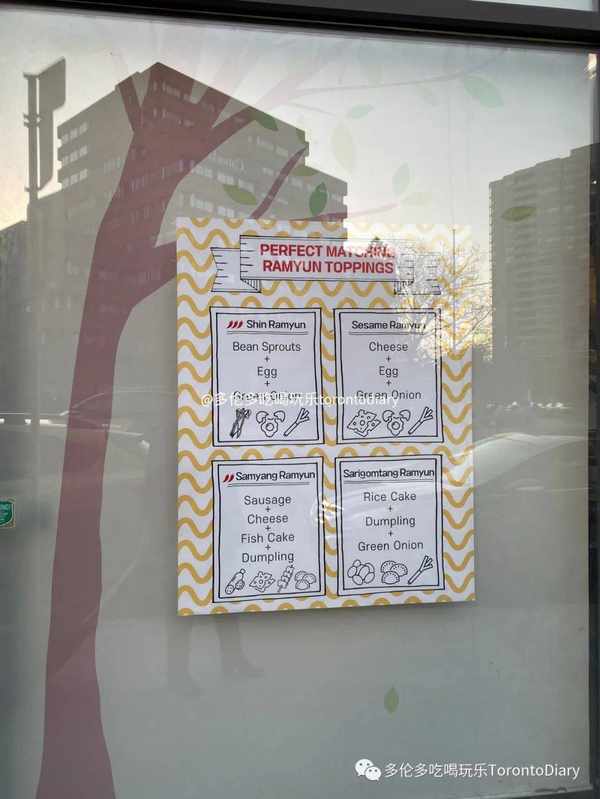 PERFECT MATCHING
RAMYUN TOPPINGS
Shin Ramyun
Bean Sprouts
+
Egg
+
Green Onion
Sesame Ramyun
Cheese
+
Egg
+
Green Onion
@多伦多吃喝玩乐torontodiary
Samyang Ramyun
Sausage
+
Cheese
+
Fish Cake
+
Dumpling
Sarigomtang Ramyun
Rice Cake
+
Dumpling
+
Green Onion
多伦多吃喝玩乐TorontoDiary